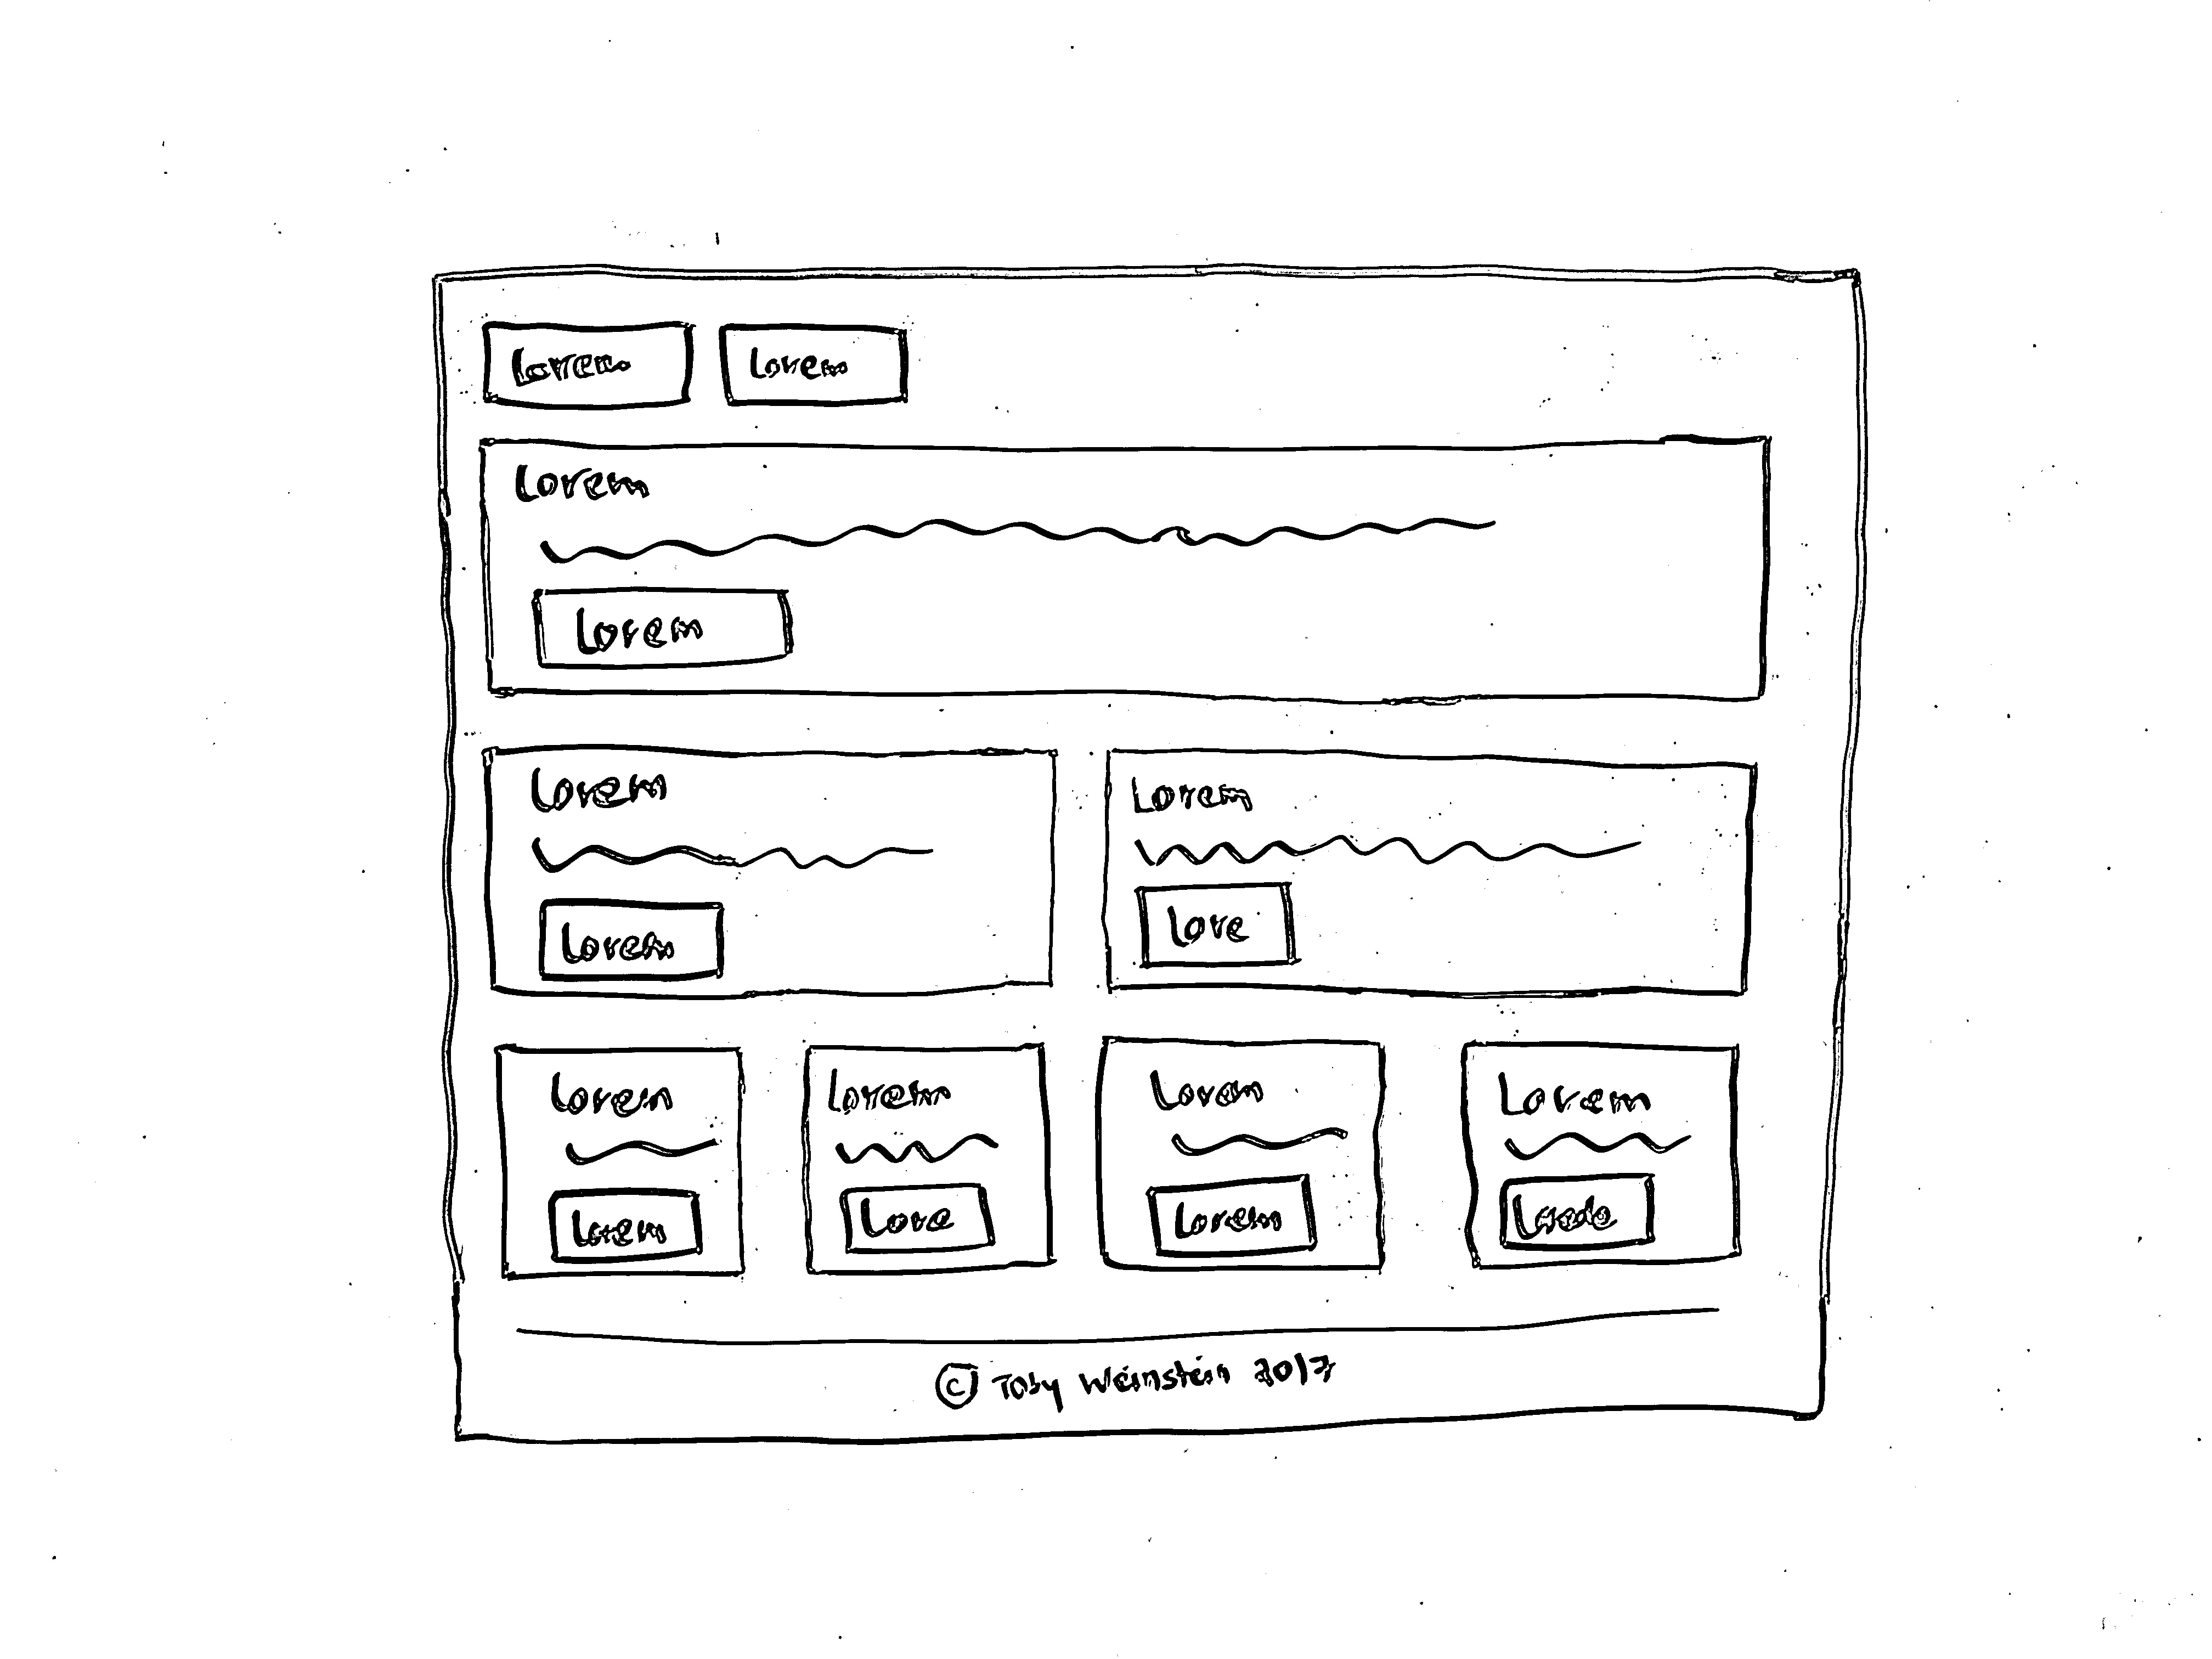 Lorem Lorem
Lorem
Lorem
Lorem Lorem
Lorem Lore
Lorem Lorem Lorem Lorem
Lorem Lore Lorem
© Toby Weinstein 2017